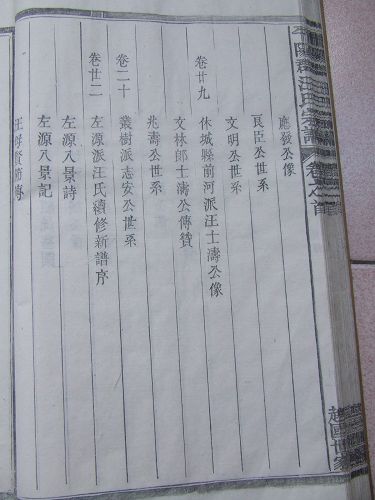 平陽郡汪氏宗譜 卷之首
應發公像
良臣公世系
文明公世系
卷廿九
休城縣前河派汪士濤公像
文林郎士濤公傳贊
兆濤公世系
卷二十
叢樹派志安公世系
卷廿二
左源派汪氏續修新譜序
左源八景詩
左源八景記
汪母賢節傳
越國世家